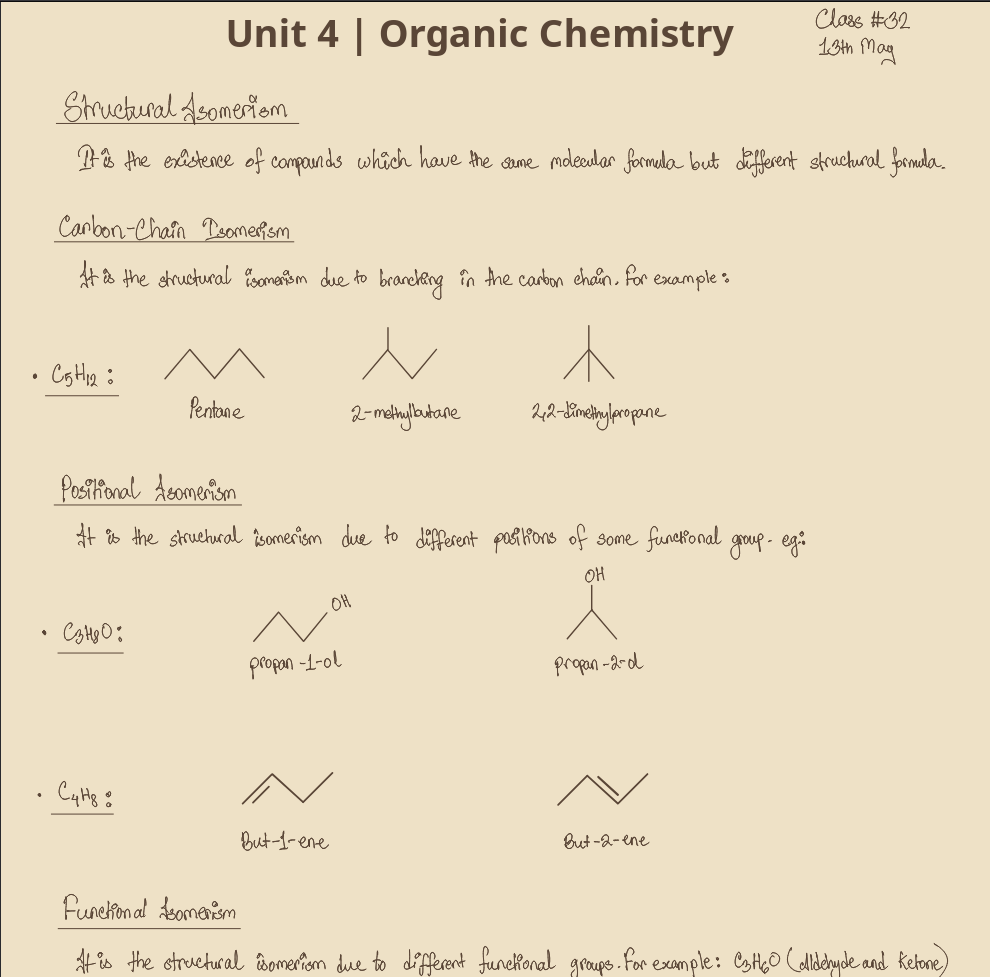 Unit 4 | Organic Chemistry
Class #32
13th May
Structural Isomerism
It is the existence of compounds which have the same molecular formula but different structural formula.
Carbon-Chain Isomerism
It is the structural isomerism due to branching in the carbon chain. For example:
• C₅H₁₂:
Pentane 2-methylbutane 2,2-dimethylpropane
Positional Isomerism
It is the structural isomerism due to different positions of some functional group. eg:
OH
OH
• C₃H₈O:
propan-1-ol propan-2-ol
• C₄H₈:
But-1-ene But-2-ene
Functional Isomerism
It is the structural isomerism due to different functional groups. For example: C₃H₆O (aldehyde and ketone)